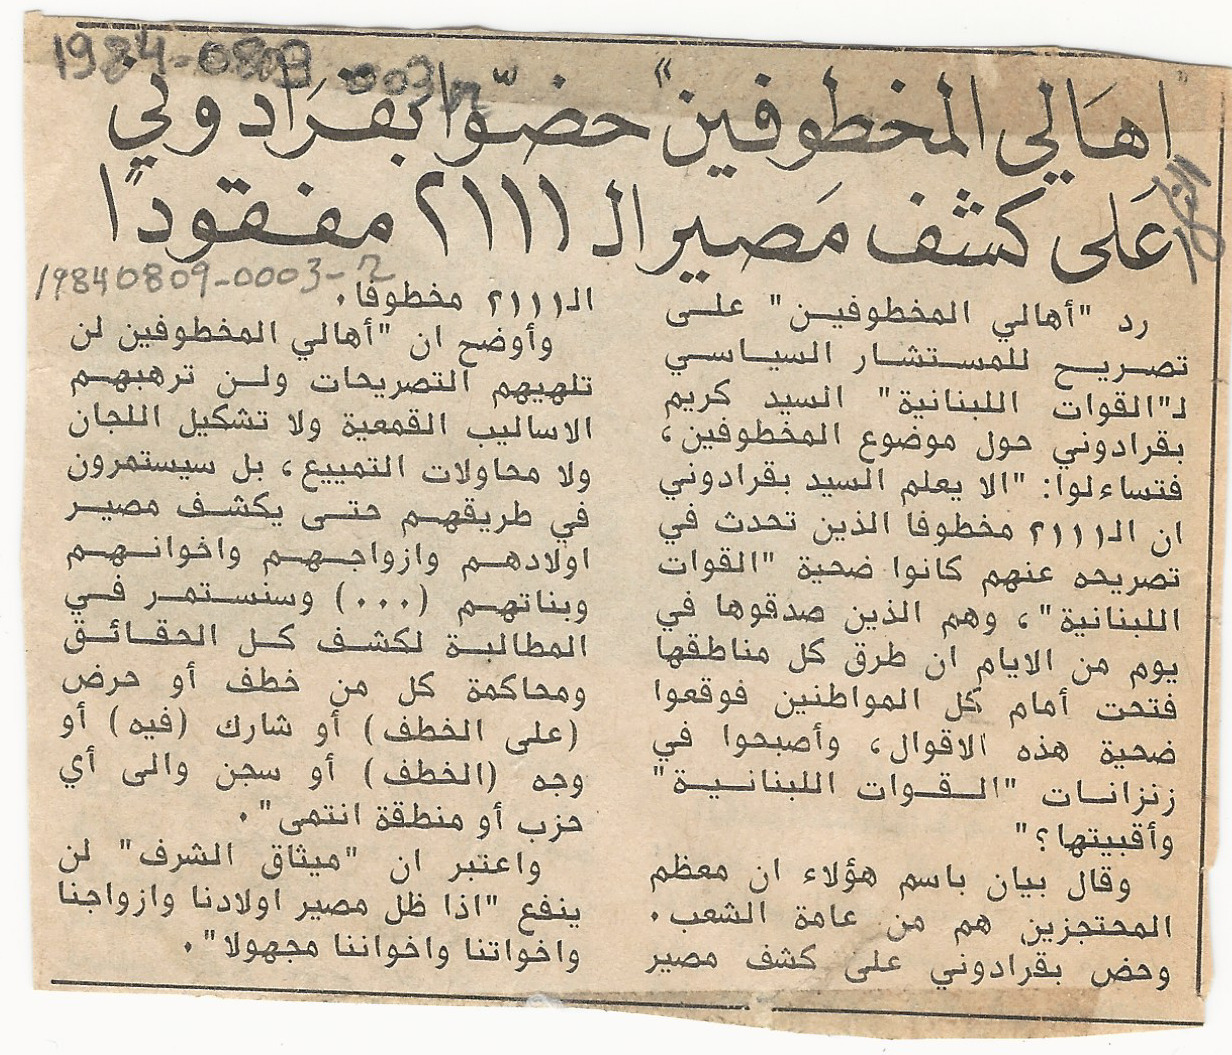 1984-0809
003/2
"اهالي المخطوفين" حضّوا بقرادوني
على كشف مصير الـ ٢١١١ مفقودًا
النهار
19840809-0003-2
رد "أهالي المخطوفين" على
تصريح للمستشار السياسي
لـ"القوات اللبنانية" السيد كريم
بقرادوني حول موضوع المخطوفين،
فتساءلوا: "الا يعلم السيد بقرادوني
ان الـ٢١١١ مخطوفا الذين تحدث في
تصريحه عنهم كانوا ضحية "القوات
اللبنانية"، وهم الذين صدقوها في
يوم من الايام ان طرق كل مناطقها
فتحت أمام كل المواطنين فوقعوا
ضحية هذه الاقوال، وأصبحوا في
زنزانات "القوات اللبنانية"
وأقبيتها؟"
وقال بيان باسم هؤلاء ان معظم
المحتجزين هم من عامة الشعب.
وحض بقرادوني على كشف مصير
الـ٢١١١ مخطوفا.
وأوضح ان "أهالي المخطوفين لن
تلهيهم التصريحات ولن ترهبهم
الاساليب القمعية ولا تشكيل اللجان
ولا محاولات التمييع، بل سيستمرون
في طريقهم حتى يكشف مصير
اولادهم وازواجهم واخوانهم
وبناتهم (...) وسنستمر في
المطالبة لكشف كل الحقائق
ومحاكمة كل من خطف أو حرض
(على الخطف) أو شارك (فيه) أو
وجه (الخطف) أو سجن والى أي
حزب أو منطقة انتمى".
واعتبر ان "ميثاق الشرف" لن
ينفع "اذا ظل مصير اولادنا وازواجنا
واخواتنا واخواننا مجهولا".